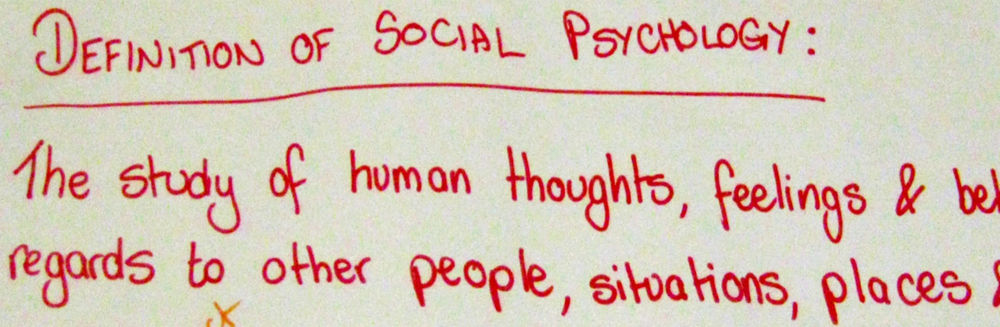 DEFINITION OF SOCIAL PSYCHOLOGY:
The study of human thoughts, feelings &
regards to other people, situations, places